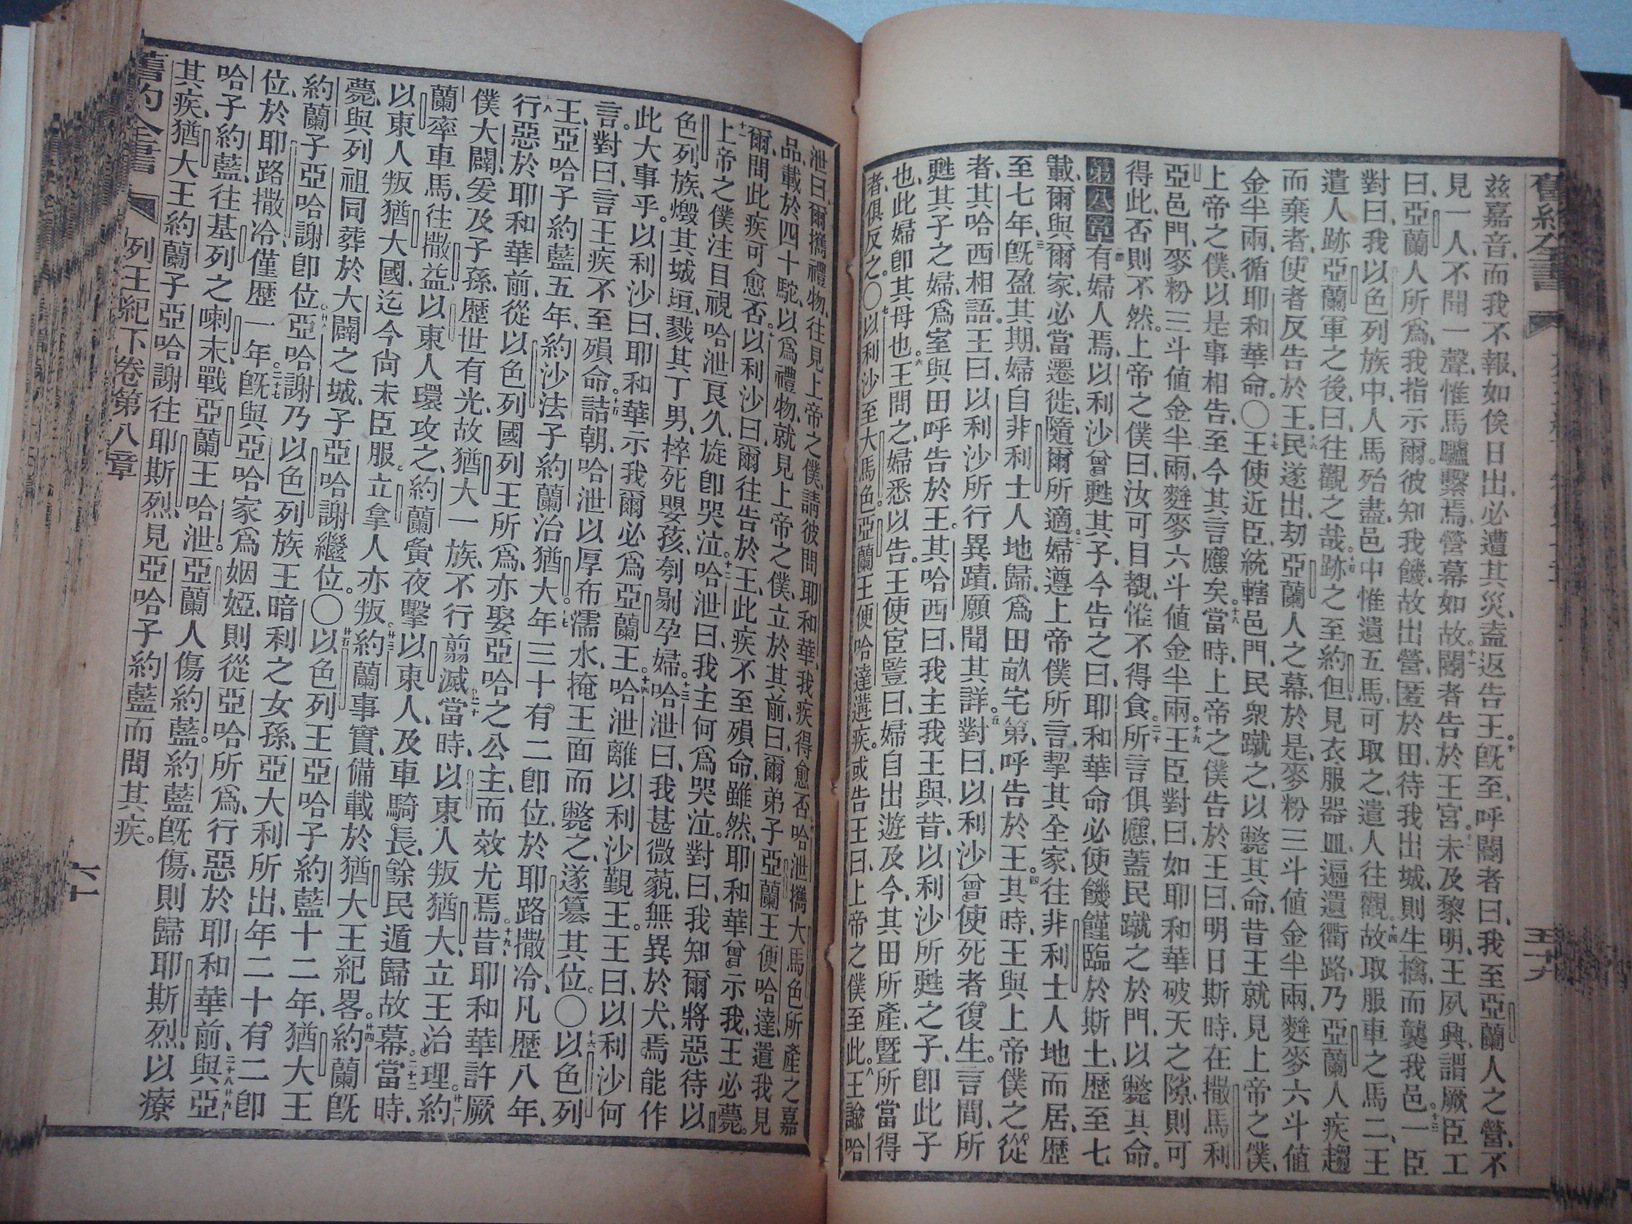 舊約全書
五十九
茲嘉音、而我不報、如俟日出、必遭其災、盍返告王。十既至、呼閽者曰、我至亞蘭人之營、不
見一人、不聞一聲、惟馬驢繫焉、營幕如故。十一閽者告於王宮。未及黎明、王夙興、謂厥臣工
曰、亞蘭人所爲、我指示爾。彼知我饑、故出營、匿於田、待我出城、則生擒、而襲我邑。十三一臣
對曰、我以色列族中、人馬殆盡、邑中惟遺五馬可取之、遣人往觀。十四故取服車之馬二、王
遣人跡亞蘭軍之後、曰、往觀之哉。跡之至約但、見衣服器皿、遍遺衢路、乃亞蘭人疾趨
而棄者、使者反告於王。民遂出、劫亞蘭人之幕、於是麥粉三斗、値金半兩、麰麥六斗、値
金半兩、循耶和華命。〇王使近臣、統轄邑門、民衆蹴之、以斃其命、昔王就見上帝之僕、
上帝之僕以是事相告、至今其言應矣。十八當時上帝之僕告於王曰、明日斯時、在撒馬利
亞邑門、麥粉三斗、値金半兩、麰麥六斗、値金半兩。十九王臣對曰、如耶和華破天之隙、則可
得此、否則不然。上帝之僕曰、汝可目覩、惟不得食。二十所言俱應、蓋民蹴之於門、以斃其命。
第八章有婦人焉、以利沙曾甦其子、今告之曰、耶和華命必使饑饉臨於斯土、歷至七
載、爾與爾家必當遷徙、隨爾所適。二婦遵上帝僕所言、挈其全家、往非利士人地而居、歷
至七年。三既盈其期、婦自非利士人地歸、爲田畝宅第、呼告於王。四其時王與上帝僕之從
者、其哈西相語。王曰、以利沙所行異蹟、願聞其詳。五對曰、以利沙曾使死者復生。言間、所
甦其子之婦、爲室與田、呼告於王。其哈西曰、我主我王與、昔以利沙所甦之子、卽此子
也、此婦卽其母也。六王問之、婦悉以告。王使宦豎曰、婦自出遊及今、其田所產、曁所當得
者、俱反之。〇七以利沙至大馬色、亞蘭王便哈達遘疾。或告王曰、上帝之僕至此。八王諭哈
泄曰、爾攜禮物、往見上帝之僕、請彼問耶和華、我疾得愈否。哈泄攜大馬色所產之嘉
品、載於四十駝、以爲禮物、就見上帝之僕、立於其前、曰、爾弟子亞蘭王便哈達、遣我見
爾、問此疾可愈否。以利沙曰、爾往告於王、此疾不至殞命、雖然、耶和華曾示我、王必薨。
十一上帝之僕注目視哈泄良久、旋卽哭泣。十二哈泄曰、我主何爲哭泣。對曰、我知爾將惡待以
色列族、燬其城垣、戮其丁男、摔死嬰孩、刳剔孕婦。十三哈泄曰、我甚微藐、無異於犬、焉能作
此大事乎。以利沙曰、耶和華示我、爾必爲亞蘭王。十四哈泄離以利沙、覲王。王曰、以利沙何
言。對曰、言王疾不至殞命。十五詰朝、哈泄以厚布濡水、掩王面而斃之、遂簒其位。〇十六以色列
王亞哈子約藍五年、約沙法子約蘭治猶大、年三十有二卽位、於耶路撒冷凡歷八年、
十八行惡於耶和華前、從以色列國列王所爲、亦娶亞哈之公主、而效尤焉。十九昔耶和華許厥
僕大闢、爰及子孫、歷世有光、故猶大一族、不行翦滅。二十當時、以東人叛猶大、立王治理。廿一約
蘭率車馬、往撒益、以東人環攻之、約蘭夤夜擊以東人、及車騎長、餘民遁歸故幕。二十二當時、
以東人叛猶大國、迄今尚未臣服。立拿人亦叛。廿三約蘭事實、備載於猶大王紀畧。廿四約蘭既
薨、與列祖同葬於大闢之城、子亞哈謝繼位。〇廿五以色列王亞哈子約藍十二年、猶大王
約蘭子亞哈謝卽位。亞哈謝乃以色列族王暗利之女孫、亞大利所出、年二十有二卽
位、於耶路撒冷、僅歷一年。二十七既與亞哈家爲姻婭、則從亞哈所爲、行惡於耶和華前、二十八廿九與亞
哈子約藍、往基列之喇末、戰亞蘭王哈泄。亞蘭人傷約藍。約藍既傷、則歸耶斯烈、以療
其疾、猶大王約蘭子亞哈謝、往耶斯烈、見亞哈子約藍、而問其疾。
舊約全書 列王紀下卷第八章 六十